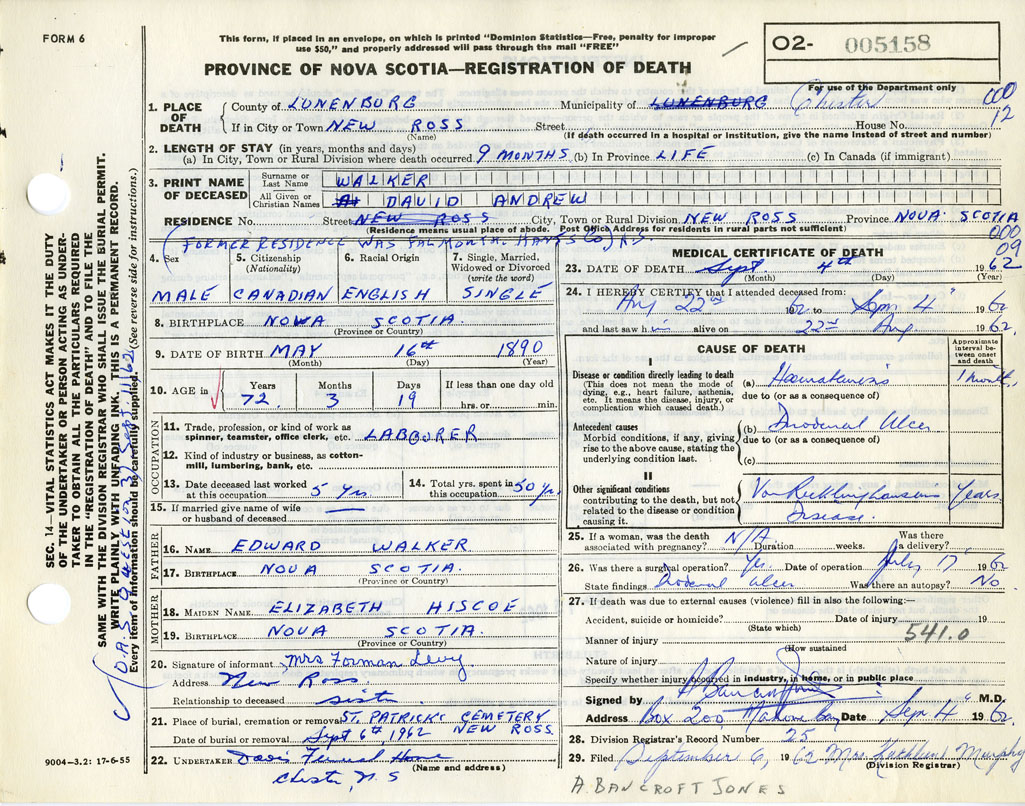 FORM 6
This form, if placed in an envelope, on which is printed "Dominion Statistics—Free, penalty for improper
use $50," and properly addressed will pass through the mail "FREE"
O2- 005158
PROVINCE OF NOVA SCOTIA—REGISTRATION OF DEATH
For use of the Department only
1. PLACE OF DEATH
County of LUNENBURG Municipality of LUNENBURG Chester 000
If in City or Town NEW ROSS Street House No. 12
(Name) (If death occurred in a hospital or institution, give the name instead of street and number)
2. LENGTH OF STAY (in years, months and days)
(a) In City, Town or Rural Division where death occurred. 9 MONTHS (b) In Province LIFE (c) In Canada (if immigrant)
3. PRINT NAME OF DECEASED
Surname or Last Name WALKER
All Given or Christian Names DAVID ANDREW
RESIDENCE No. Street NEW ROSS City, Town or Rural Division NEW ROSS Province NOVA SCOTIA
(Residence means usual place of abode. Post Office Address for residents in rural parts not sufficient) 000
(FORMER RESIDENCE WAS FALMOUTH. HANTS Co. N.S. 09
4. Sex
MALE
5. Citizenship
(Nationality)
CANADIAN
6. Racial Origin
ENGLISH
7. Single, Married,
Widowed or Divorced
(write the word)
SINGLE
8. BIRTHPLACE NOVA SCOTIA
(Province or Country)
9. DATE OF BIRTH MAY 16th 1890
(Month) (Day) (Year)
10. AGE in
Years Months Days If less than one day old
72 3 19 hrs. or min.
OCCUPATION
11. Trade, profession, or kind of work as
spinner, teamster, office clerk, etc. LABOURER
12. Kind of industry or business, as cotton-
mill, lumbering, bank, etc.
13. Date deceased last worked
at this occupation 5 Yrs
14. Total yrs. spent in
this occupation 50 Yrs.
15. If married give name of wife
or husband of deceased —
FATHER
16. NAME. EDWARD WALKER
17. BIRTHPLACE. NOVA SCOTIA
(Province or Country)
MOTHER
18. MAIDEN NAME. ELIZABETH HISCOE
19. BIRTHPLACE NOVA SCOTIA.
(Province or Country)
20. Signature of informant Mrs Forman Levy
Address New Ross
Relationship to deceased sister
21. Place of burial, cremation or removal ST. PATRICK'S CEMETERY
NEW ROSS
Date of burial or removal Sept 6th, 1962
22. UNDERTAKER Davis Funeral Home
(Name and address)
Chester, N.S
MEDICAL CERTIFICATE OF DEATH
23. DATE OF DEATH Sept. 4th 1962
(Month) (Day) (Year)
24. I HEREBY CERTIFY that I attended deceased from:
Aug 22nd 1962 to Sept 4 1962
and last saw him alive on 22nd Aug 1962.
CAUSE OF DEATH
Approximate
interval be-
tween onset
and death
I
Disease or condition directly leading to death
(This does not mean the mode of
dying, e.g., heart failure, asthenia,
etc. It means the disease, injury, or
complication which caused death.)
(a) Haematemesis 1 month
due to (or as a consequence of)
Antecedent causes
Morbid conditions, if any, giving
rise to the above cause, stating the
underlying condition last.
(b) Duodenal Ulcer
due to (or as a consequence of)
(c)
II
Other significant conditions
contributing to the death, but not
related to the disease or condition
causing it.
Von Recklinghausens Disease. Years
25. If a woman, was the death
associated with pregnancy? N/A Duration weeks. Was there
a delivery?
26. Was there a surgical operation? Yes. Date of operation July 17 1962
State findings Duodenal ulcer Was there an autopsy? No
27. If death was due to external causes (violence) fill in also the following:—
Accident, suicide or homicide? Date of injury 19
(State which)
541.0
Manner of injury
(How sustained
Nature of injury
Specify whether injury occurred in industry, in home, or in public place
Signed by A Bancroft Jones M.D.
Address Box 200 Mahone Bay Date Sept 4 1962.
28. Division Registrar's Record Number 25
29. Filed September 6, 1962 Mrs. Kathleen Murphy
(Division Registrar)
A. BANCROFT JONES
9004—3.2: 17-6-55
SEC. 14—VITAL STATISTICS ACT MAKES IT THE DUTY
OF THE UNDERTAKER OR PERSON ACTING AS UNDER-
TAKER TO OBTAIN ALL THE PARTICULARS REQUIRED
IN THE "REGISTRATION OF DEATH" AND TO FILE THE
SAME WITH THE DIVISION REGISTRAR WHO SHALL ISSUE THE BURIAL PERMIT.
WRITE PLAINLY WITH UNFADING INK. THIS IS A PERMANENT RECORD.
Every item of information should be carefully supplied. (See reverse side for instructions.)